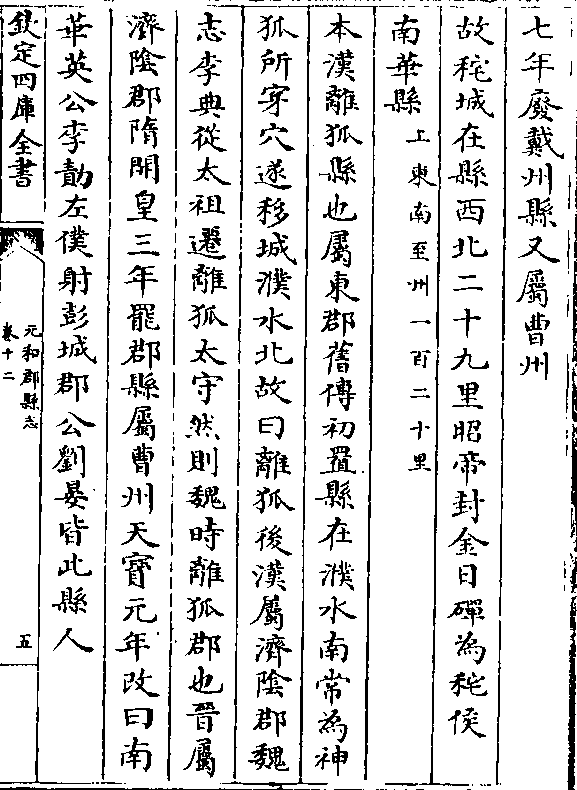 七年廢戴州縣又屬曹州
故秺城在縣西北二十九里昭帝封金日磾為秺侯
南華縣上東南至州一百二十里
本漢離狐縣也屬東郡舊傳初置縣在濮水南常為神
狐所穿穴遂移城濮水北故曰離狐後漢屬濟陰郡魏
志李典從太祖遷離狐太守然則魏時離狐郡也晉屬
濟陰郡隋開皇三年罷郡縣屬曹州天寶元年改曰南
華英公李勣左僕射彭城郡公劉晏皆此縣人
欽定四庫全書
元和郡縣志
卷十二
五